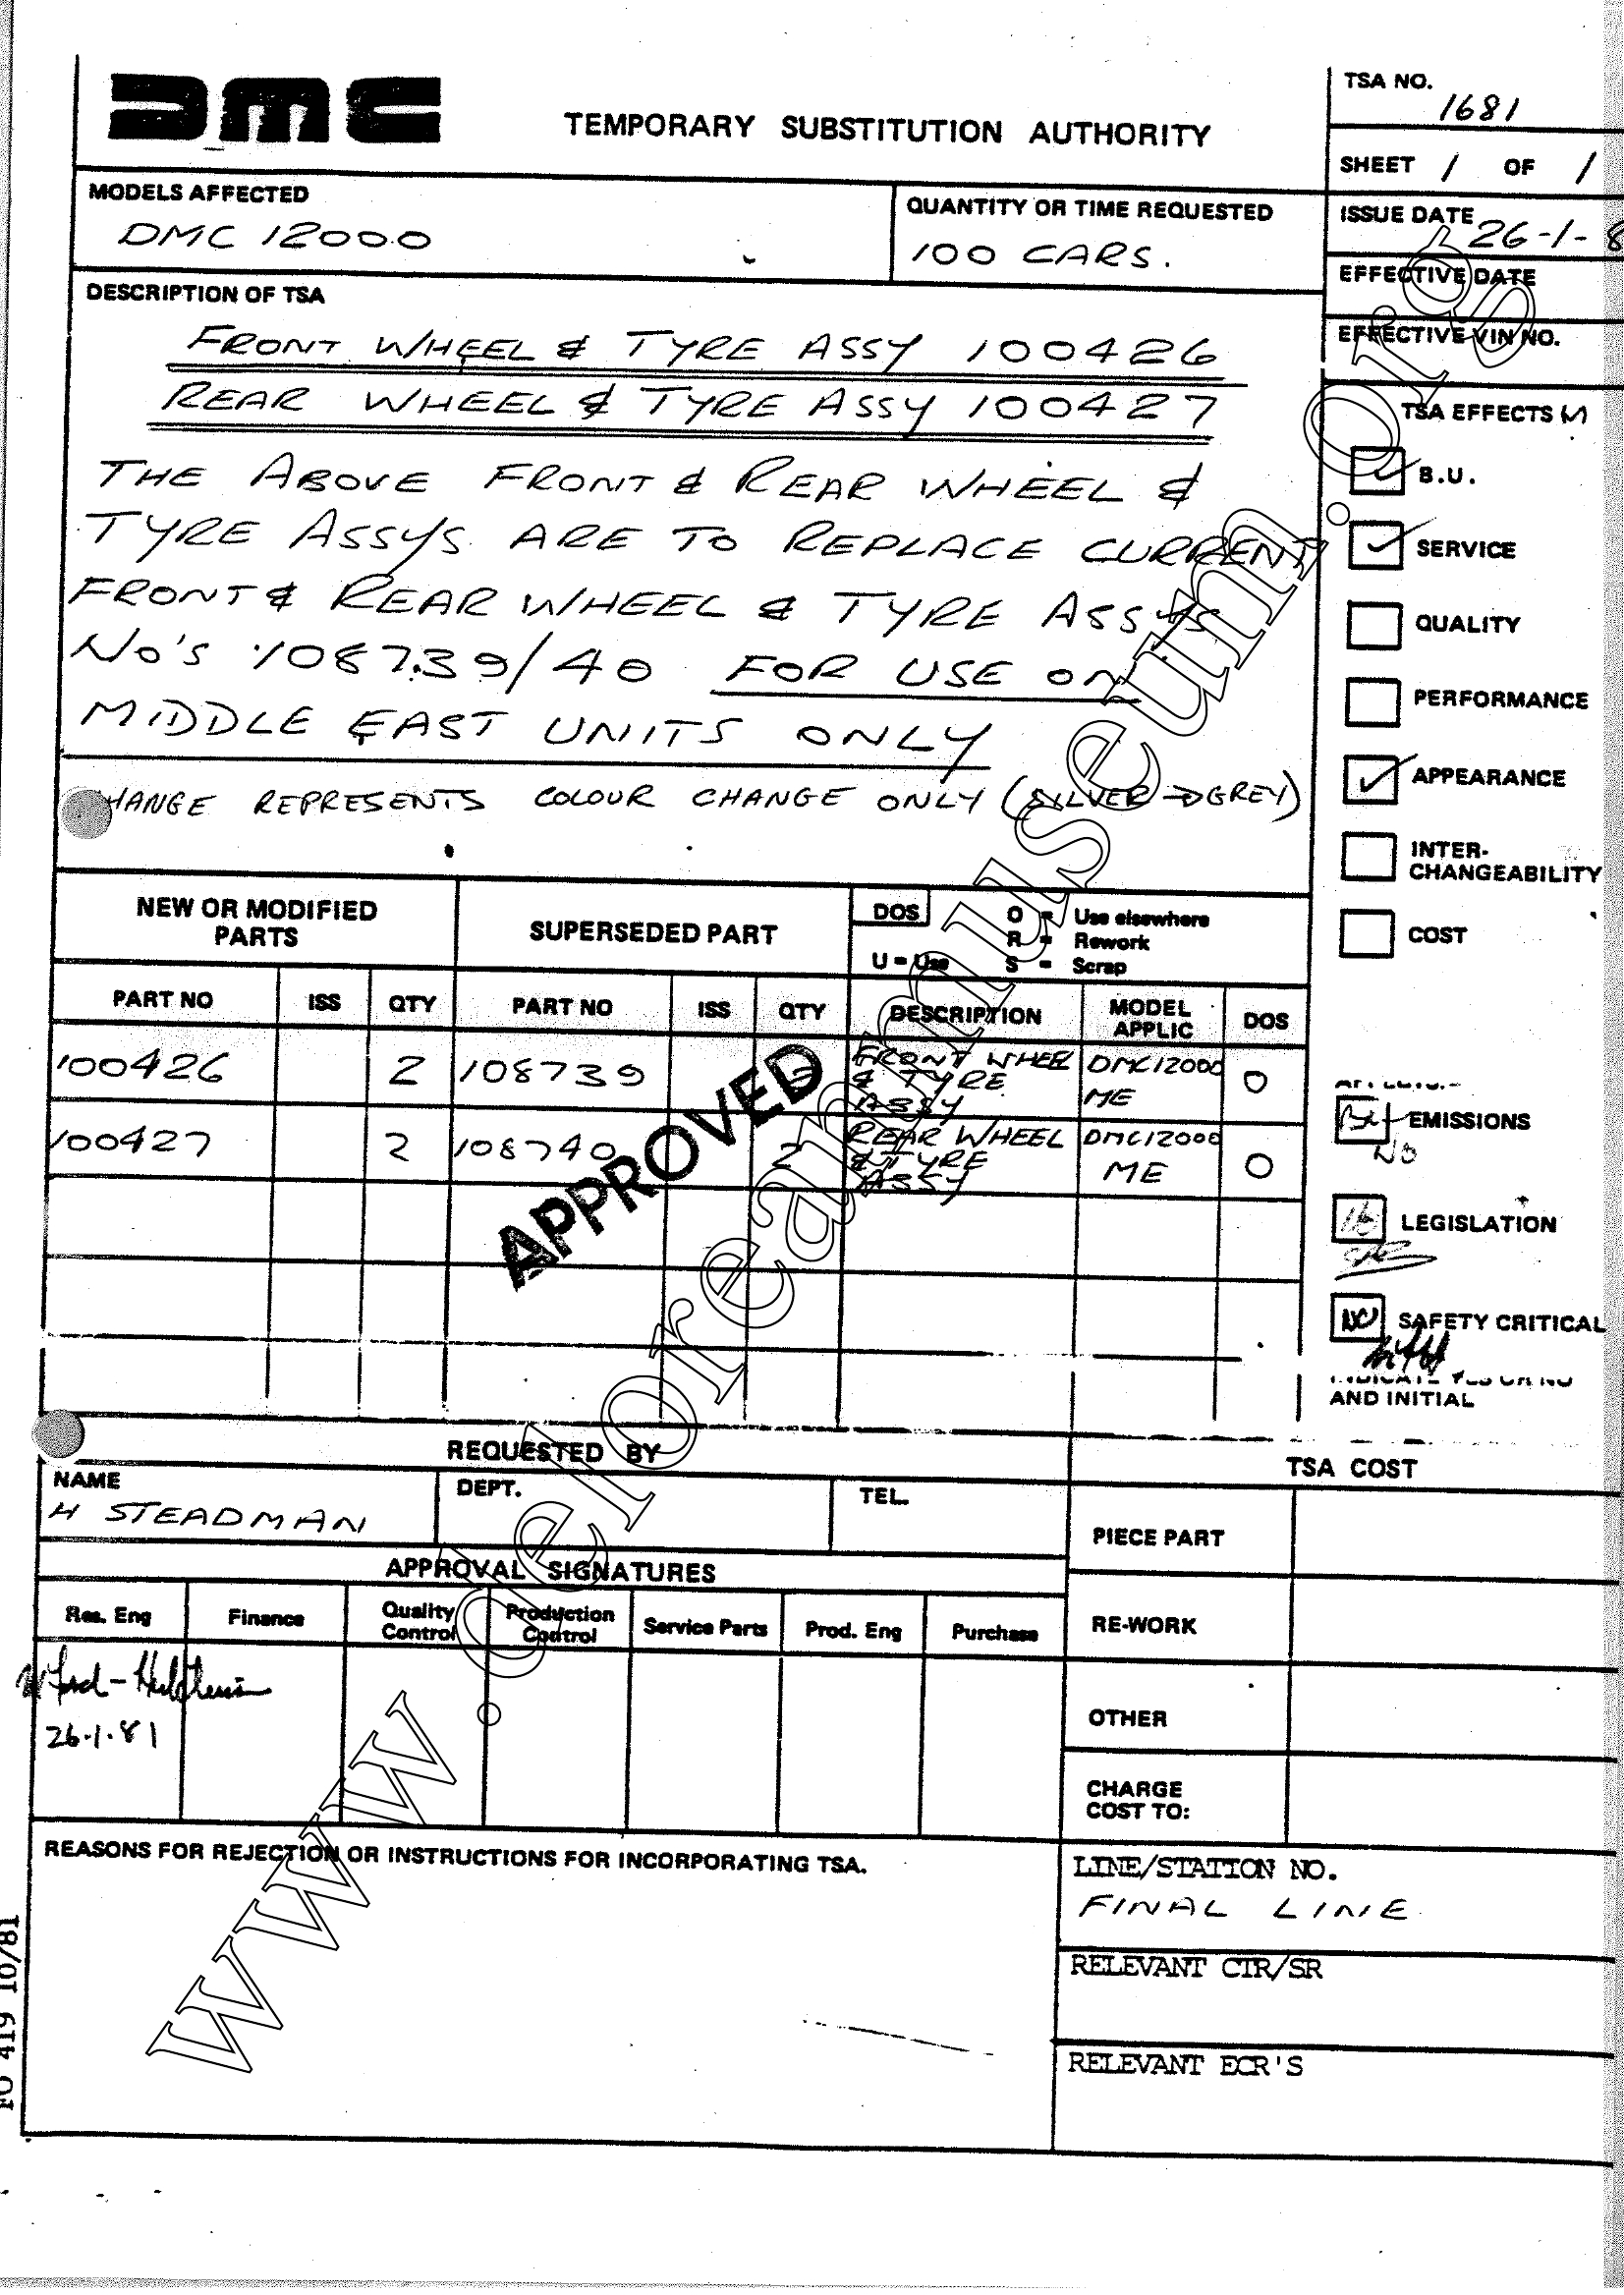 DMC
TEMPORARY SUBSTITUTION AUTHORITY
TSA NO.
1681
SHEET 1 OF 1
MODELS AFFECTED
DMC 12000
QUANTITY OR TIME REQUESTED
100 CARS.
ISSUE DATE
26-1-8
EFFECTIVE DATE
EFFECTIVE VIN NO.
DESCRIPTION OF TSA
FRONT WHEEL & TYRE ASSY 100426
REAR WHEEL & TYRE ASSY 100427
THE ABOVE FRONT & REAR WHEEL &
TYRE ASSYS. ARE TO REPLACE CURRENT
FRONT & REAR WHEEL & TYRE ASSYS
No's 108739/40 FOR USE ON
MIDDLE EAST UNITS ONLY
HANGE REPRESENTS COLOUR CHANGE ONLY (SILVER → GREY)
TSA EFFECTS (✓)
✓ B.U.
✓ SERVICE
QUALITY
PERFORMANCE
✓ APPEARANCE
INTER-
CHANGEABILITY
COST
NEW OR MODIFIED
PARTS
SUPERSEDED PART
DOS
O = Use elsewhere
R = Rework
U = Use S = Scrap
PART NO ISS QTY PART NO ISS QTY DESCRIPTION MODEL APPLIC DOS
100426 2 108739 2 FRONT WHEEL & TYRE ASSY DMC12000 ME O
100427 2 108740 2 REAR WHEEL & TYRE ASSY DMC12000 ME O
APPROVED
EMISSIONS
NO
LEGISLATION
NO SAFETY CRITICAL
INDICATE YES OR NO
AND INITIAL
REQUESTED BY
NAME
H STEADMAN
DEPT.
TEL.
TSA COST
PIECE PART
RE-WORK
OTHER
CHARGE
COST TO:
APPROVAL SIGNATURES
Res. Eng Finance Quality Control Production Control Service Parts Prod. Eng Purchase
26.1.81
REASONS FOR REJECTION OR INSTRUCTIONS FOR INCORPORATING TSA.
LINE/STATION NO.
FINAL LINE
RELEVANT CIR/SR
RELEVANT ECR'S
FO 419 10/81
www.deloreanmuseum.org